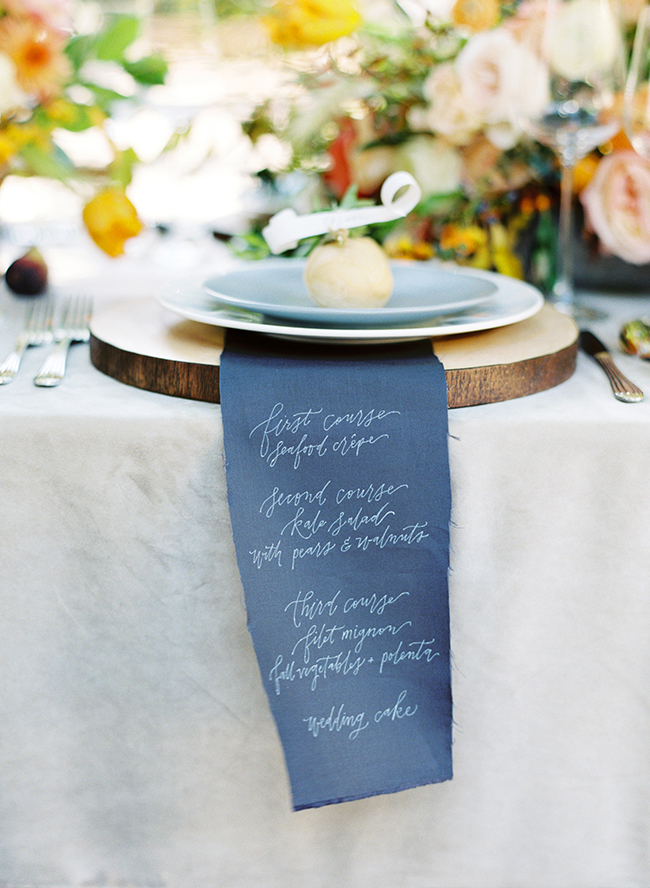 first course
seafood crêpe
second course
kale salad
with pears & walnuts
third course
filet mignon
fall vegetables + polenta
wedding cake